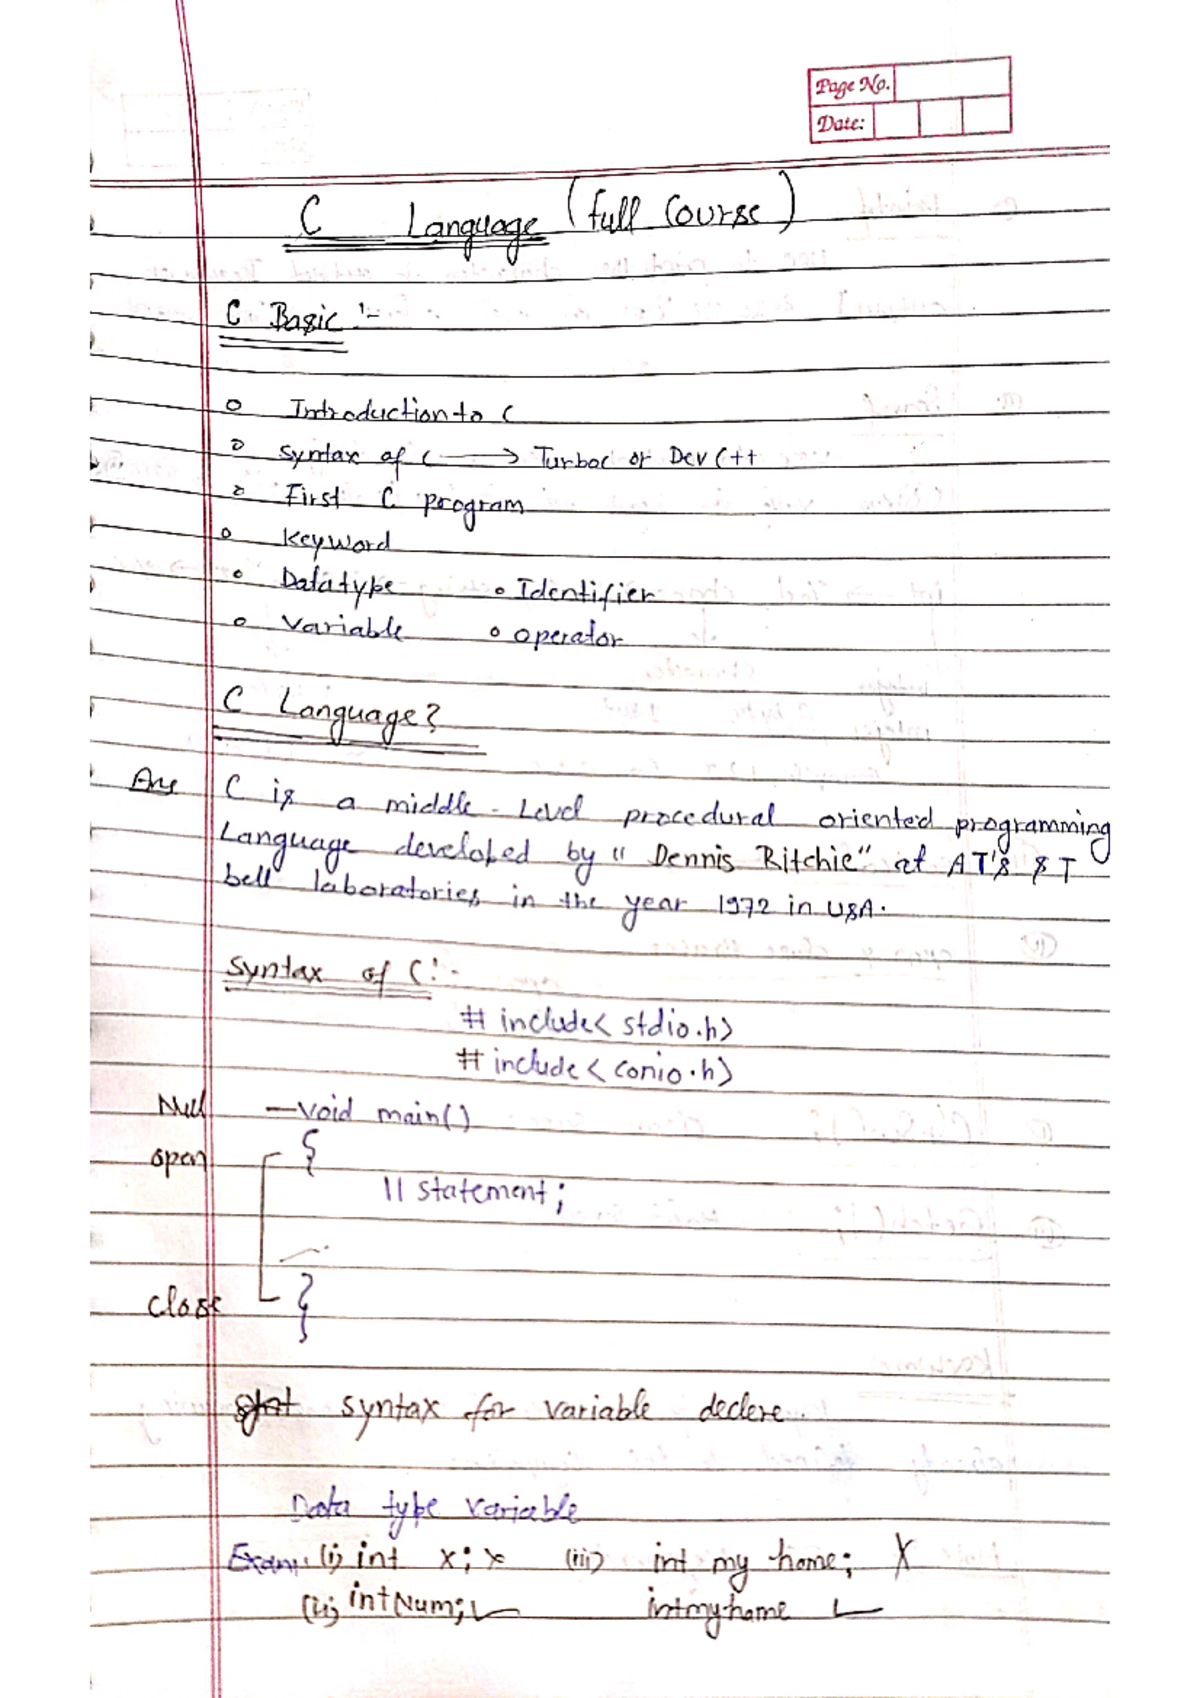 Page No.
Date:
C Language (full Course)
C Basic :-
o Introduction to C
o Syntax of C → Turboc or Dev C++
o First C program
o Keyword
o Datatype o Identifier
o Variable o operator
C Language?
Ans C is a middle-Level procedural oriented programming
Language developed by "Dennis Ritchie" at AT's & T
bell laboratories in the year 1972 in USA.
Syntax of C:-
# include< stdio.h>
# include < conio.h>
Null —void main()
open {
// statement;
close }
syntax for variable declere.
Data type variable
Exam. (i) int x; × (iii) int my home; X
(ii) int Num; ✓ intmyhome ✓